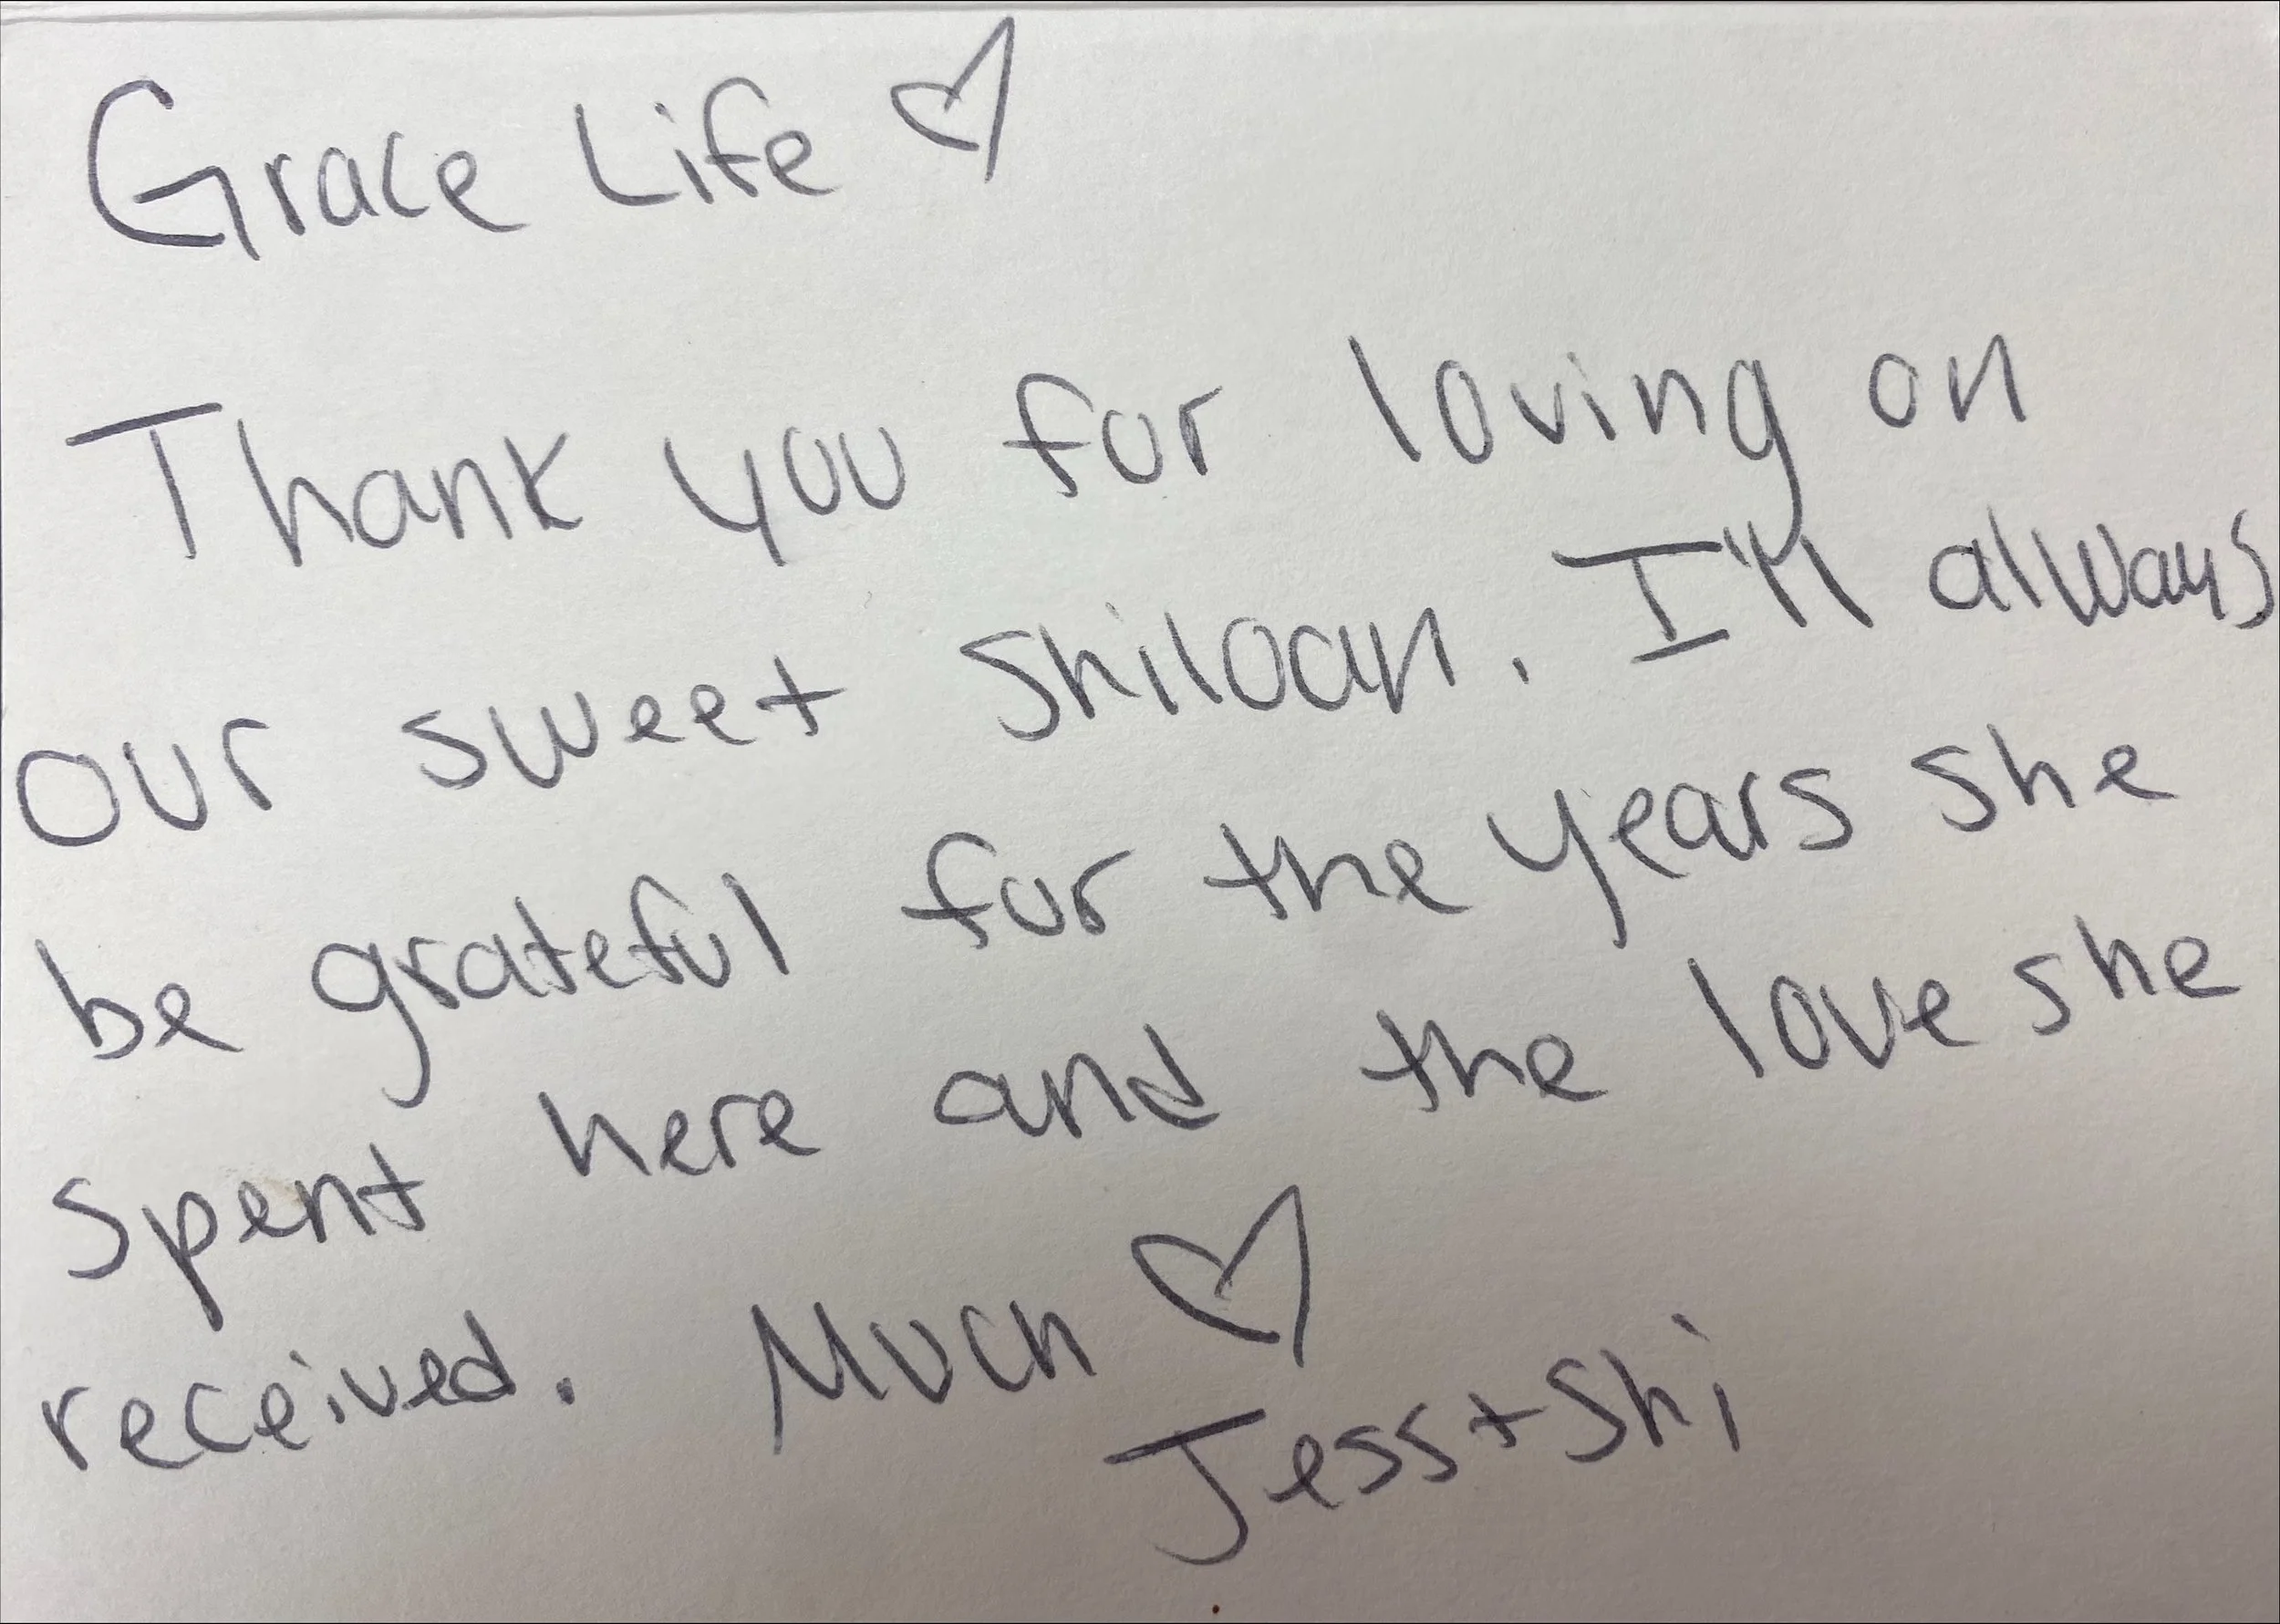 Grace Life ♡
Thank you for loving on
our sweet Shiloan. I'm always
be grateful for the years she
spent here and the love she
received. Much ♡
Jess + Shi